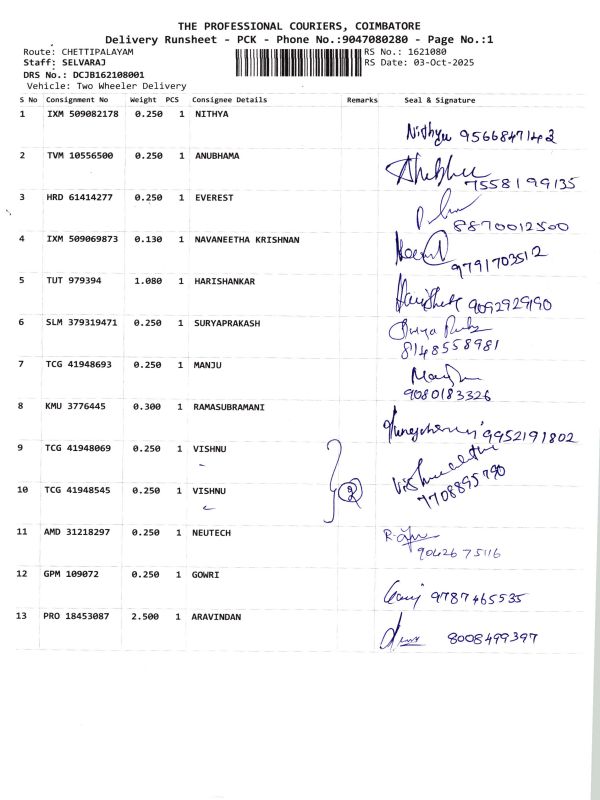 THE PROFESSIONAL COURIERS, COIMBATORE
Delivery Runsheet - PCK - Phone No.:9047080280 - Page No.:1
Route: CHETTIPALAYAM RS No.: 1621080
Staff: SELVARAJ RS Date: 03-Oct-2025
DRS No.: DCJB162108001
Vehicle: Two Wheeler Delivery
S No Consignment No Weight PCS Consignee Details Remarks Seal & Signature
1 IXM 509082178 0.250 1 NITHYA
Nithya 9566847142
2 TVM 10556500 0.250 1 ANUBHAMA
7558199135
3 HRD 61414277 0.250 1 EVEREST
8870012500
4 IXM 509069873 0.130 1 NAVANEETHA KRISHNAN
9791703512
5 TUT 979394 1.080 1 HARISHANKAR
9092929190
6 SLM 379319471 0.250 1 SURYAPRAKASH
8148558981
7 TCG 41948693 0.250 1 MANJU
9080183326
8 KMU 3776445 0.300 1 RAMASUBRAMANI
9952191802
9 TCG 41948069 0.250 1 VISHNU
10 TCG 41948545 0.250 1 VISHNU 2
7708895790
11 AMD 31218297 0.250 1 NEUTECH
9042675116
12 GPM 109072 0.250 1 GOWRI
9787465535
13 PRO 18453087 2.500 1 ARAVINDAN
8008499397